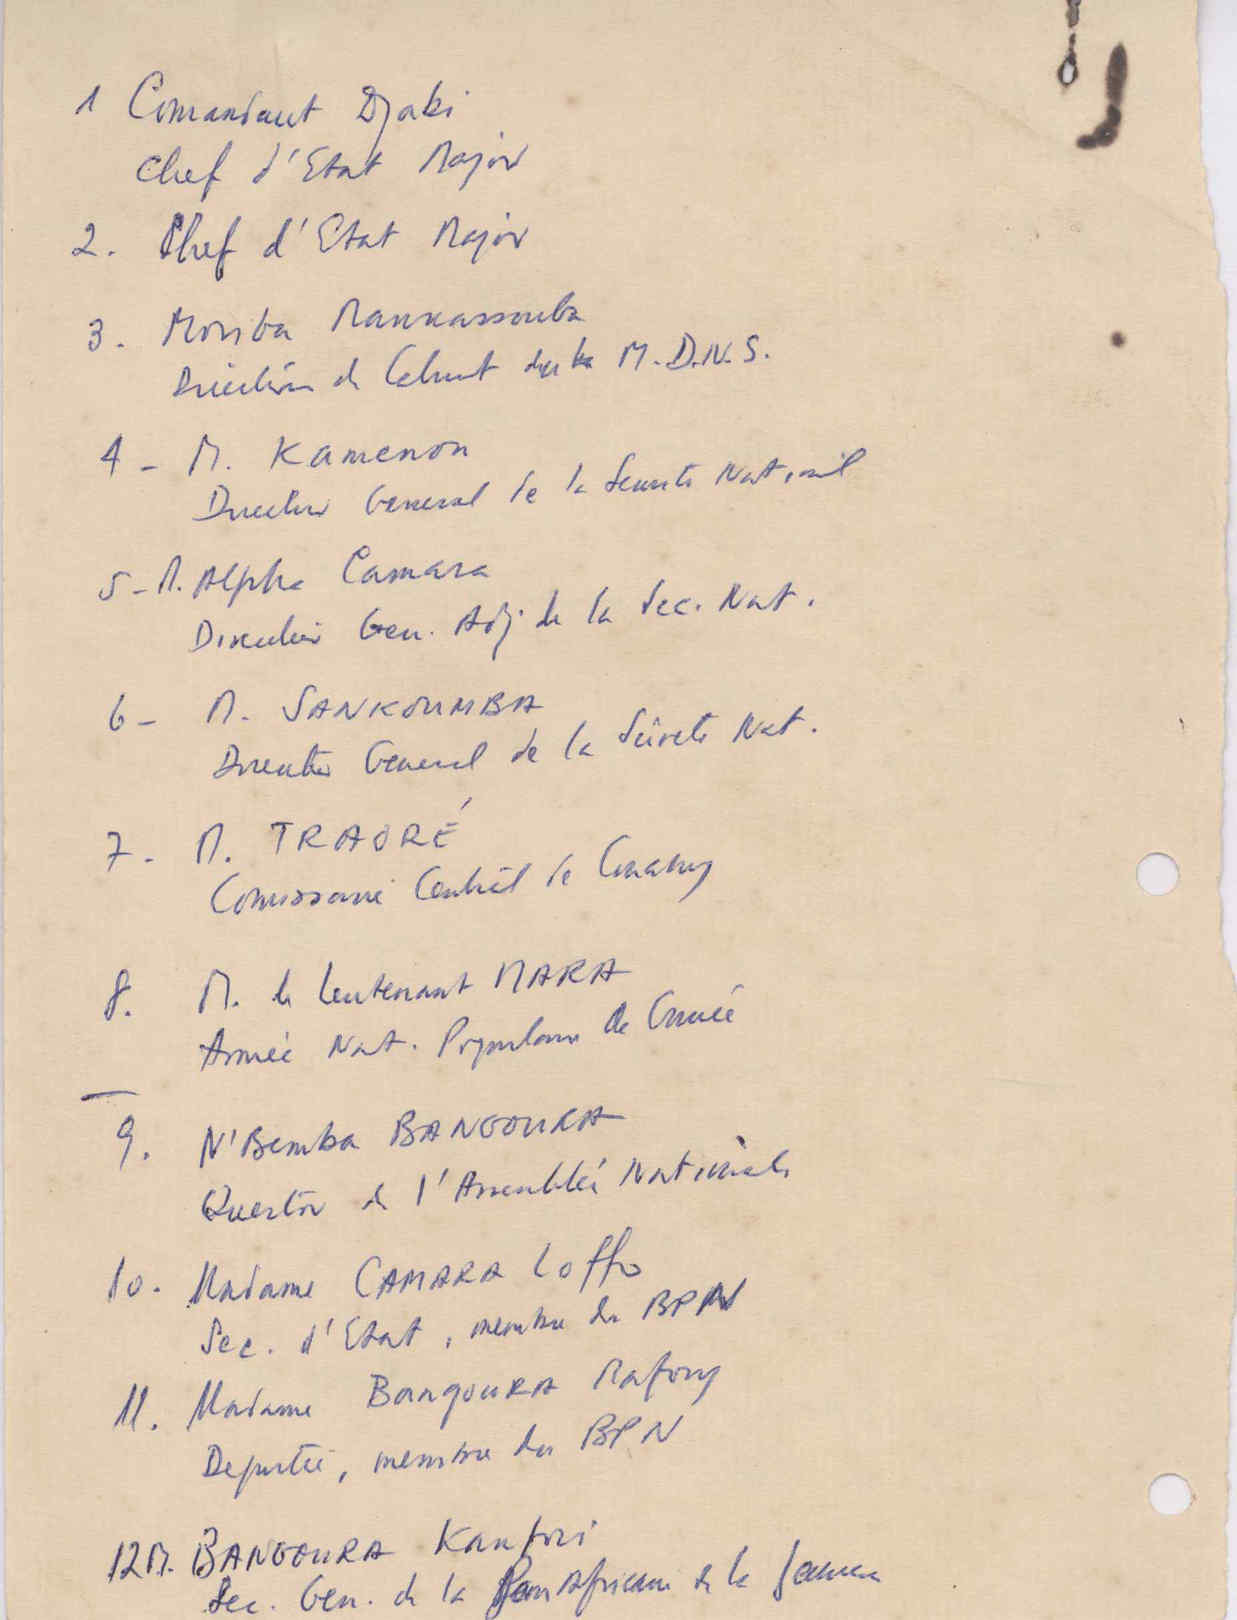 1 Comandant Djaki
Chef d'Etat Major
2. Chef d'Etat Major
3. Moriba
de Cabinet M.D.N.S.
4 - M. Kamenon
Director General de la Securite National
5 - M. Alpha Camara
Director Gen. Adj. de la Sec. Nat.
6 - M. SANKOUMBA
Director General de la Sûreté Nat.
7 - M. TRAORÉ
Comissaire Central de Conakry
8. M. le Leutenant MARA
Armée Nat. Populaire de Guinée
9. N'Bemba BANGOURA
Questor de l'Assemblée Nationale
10. Madame CAMARA Loffo
Sec. d'Etat, membre du BPN
11. Madame BangouRA Mafory
Deputée, membre du BPN
12 M. BANGOURA Kanfori
Sec. Gen. de la PanAfricaine de la